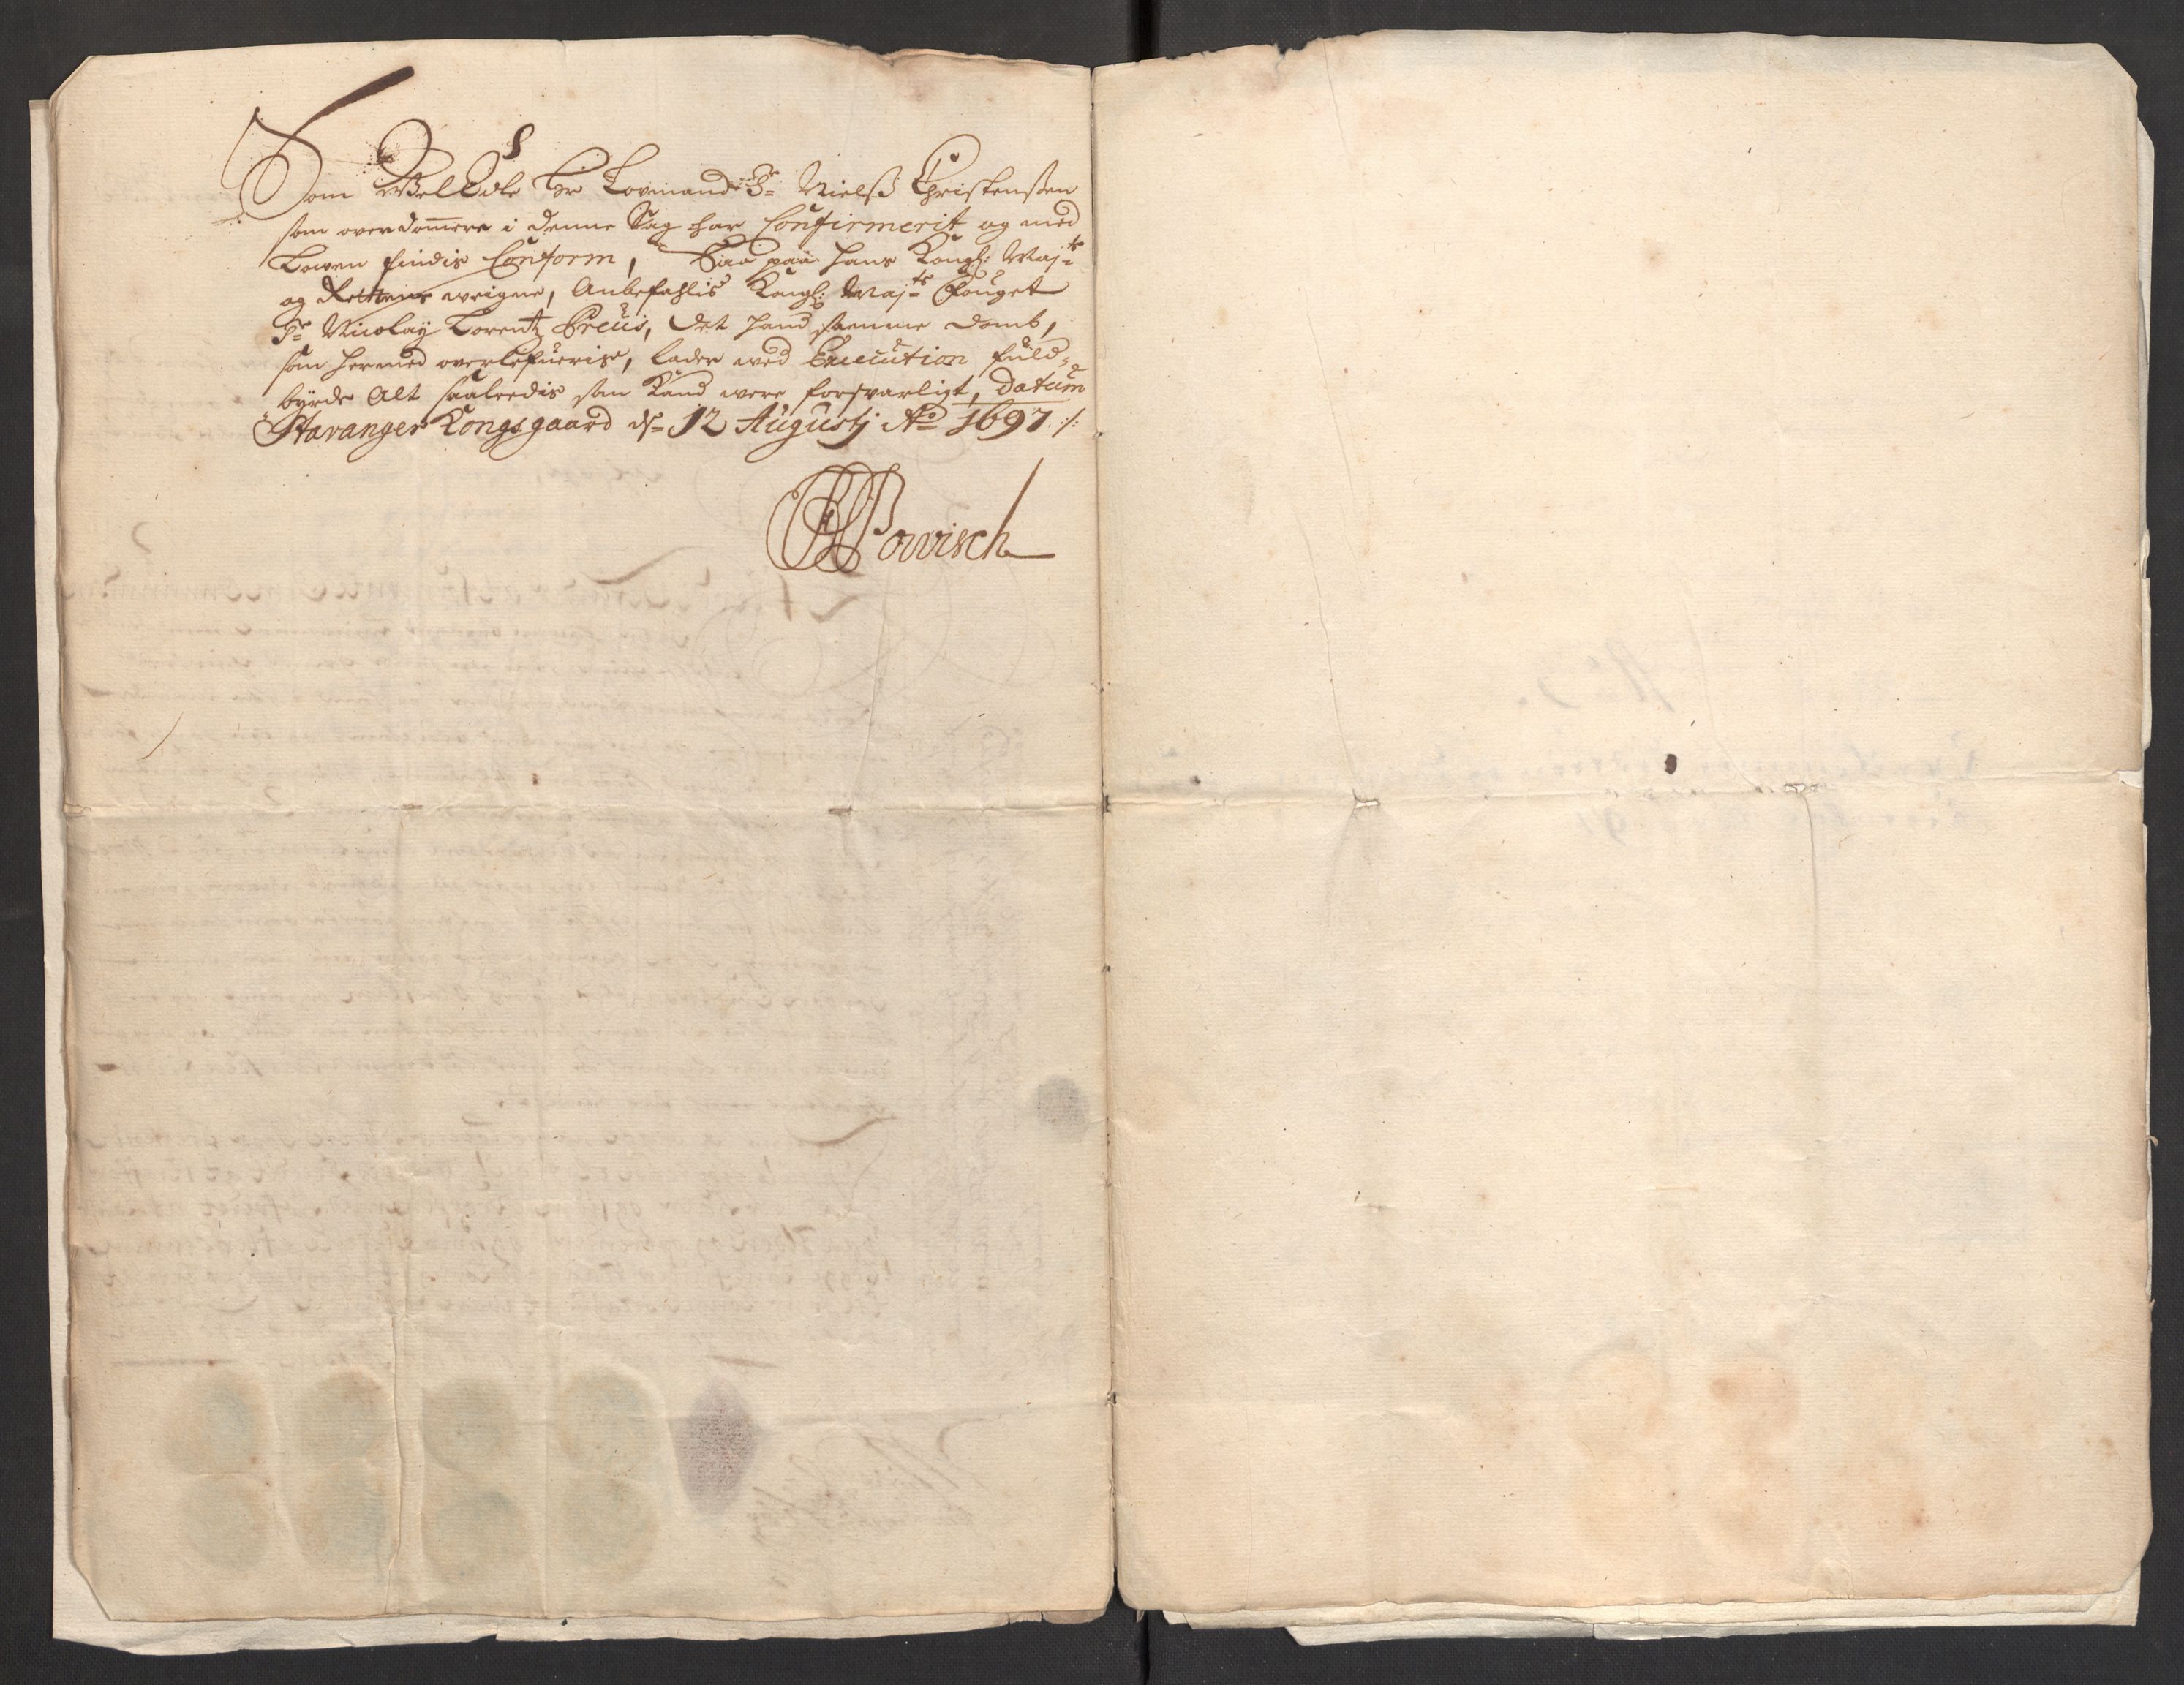 Som WelEdle Hr Lovmand Sr Nielß Christenßen
som overdom̄ere i denne Sag har Confirmerit og med
Lowen findis Conform, Saa paa hans Kongl: Maj:ts
og Rettens weigne, Anbefahlis Kongl: Maj:ts Fouget
Sr Nicolaÿ Lorentz Preus, det hand samme domb,
som hermed overlefueris, lader wed Execution fuld-
byrde Alt saaledis som Kand were forsvarligt, Datum
Stavanger Kongsgaard ds 12 Augustj Ao 1697 :/:
Powisch